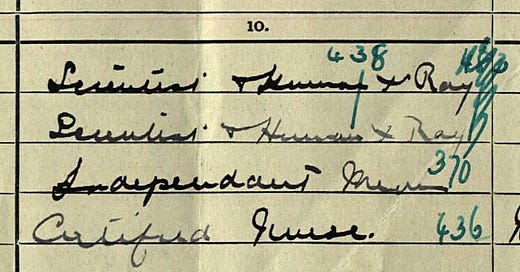 10.
438
Scientist & Human X Ray
Scientist & Human X Ray
Independant Means 370
Certified Nurse. 436